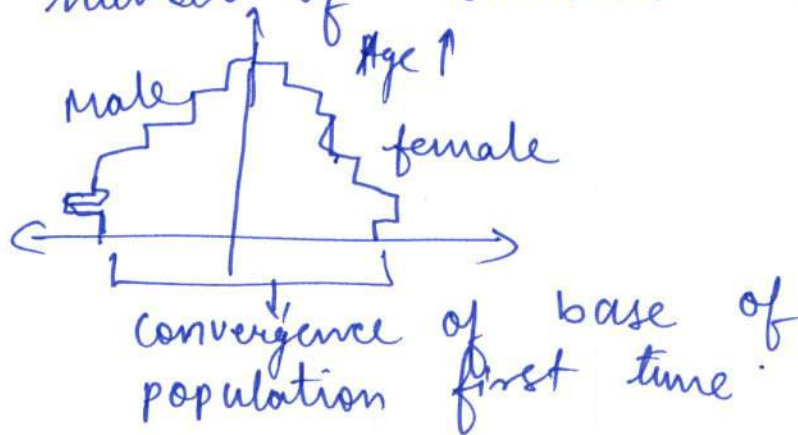 of
Age ↑
Male
female
convergence of base of
population first time.